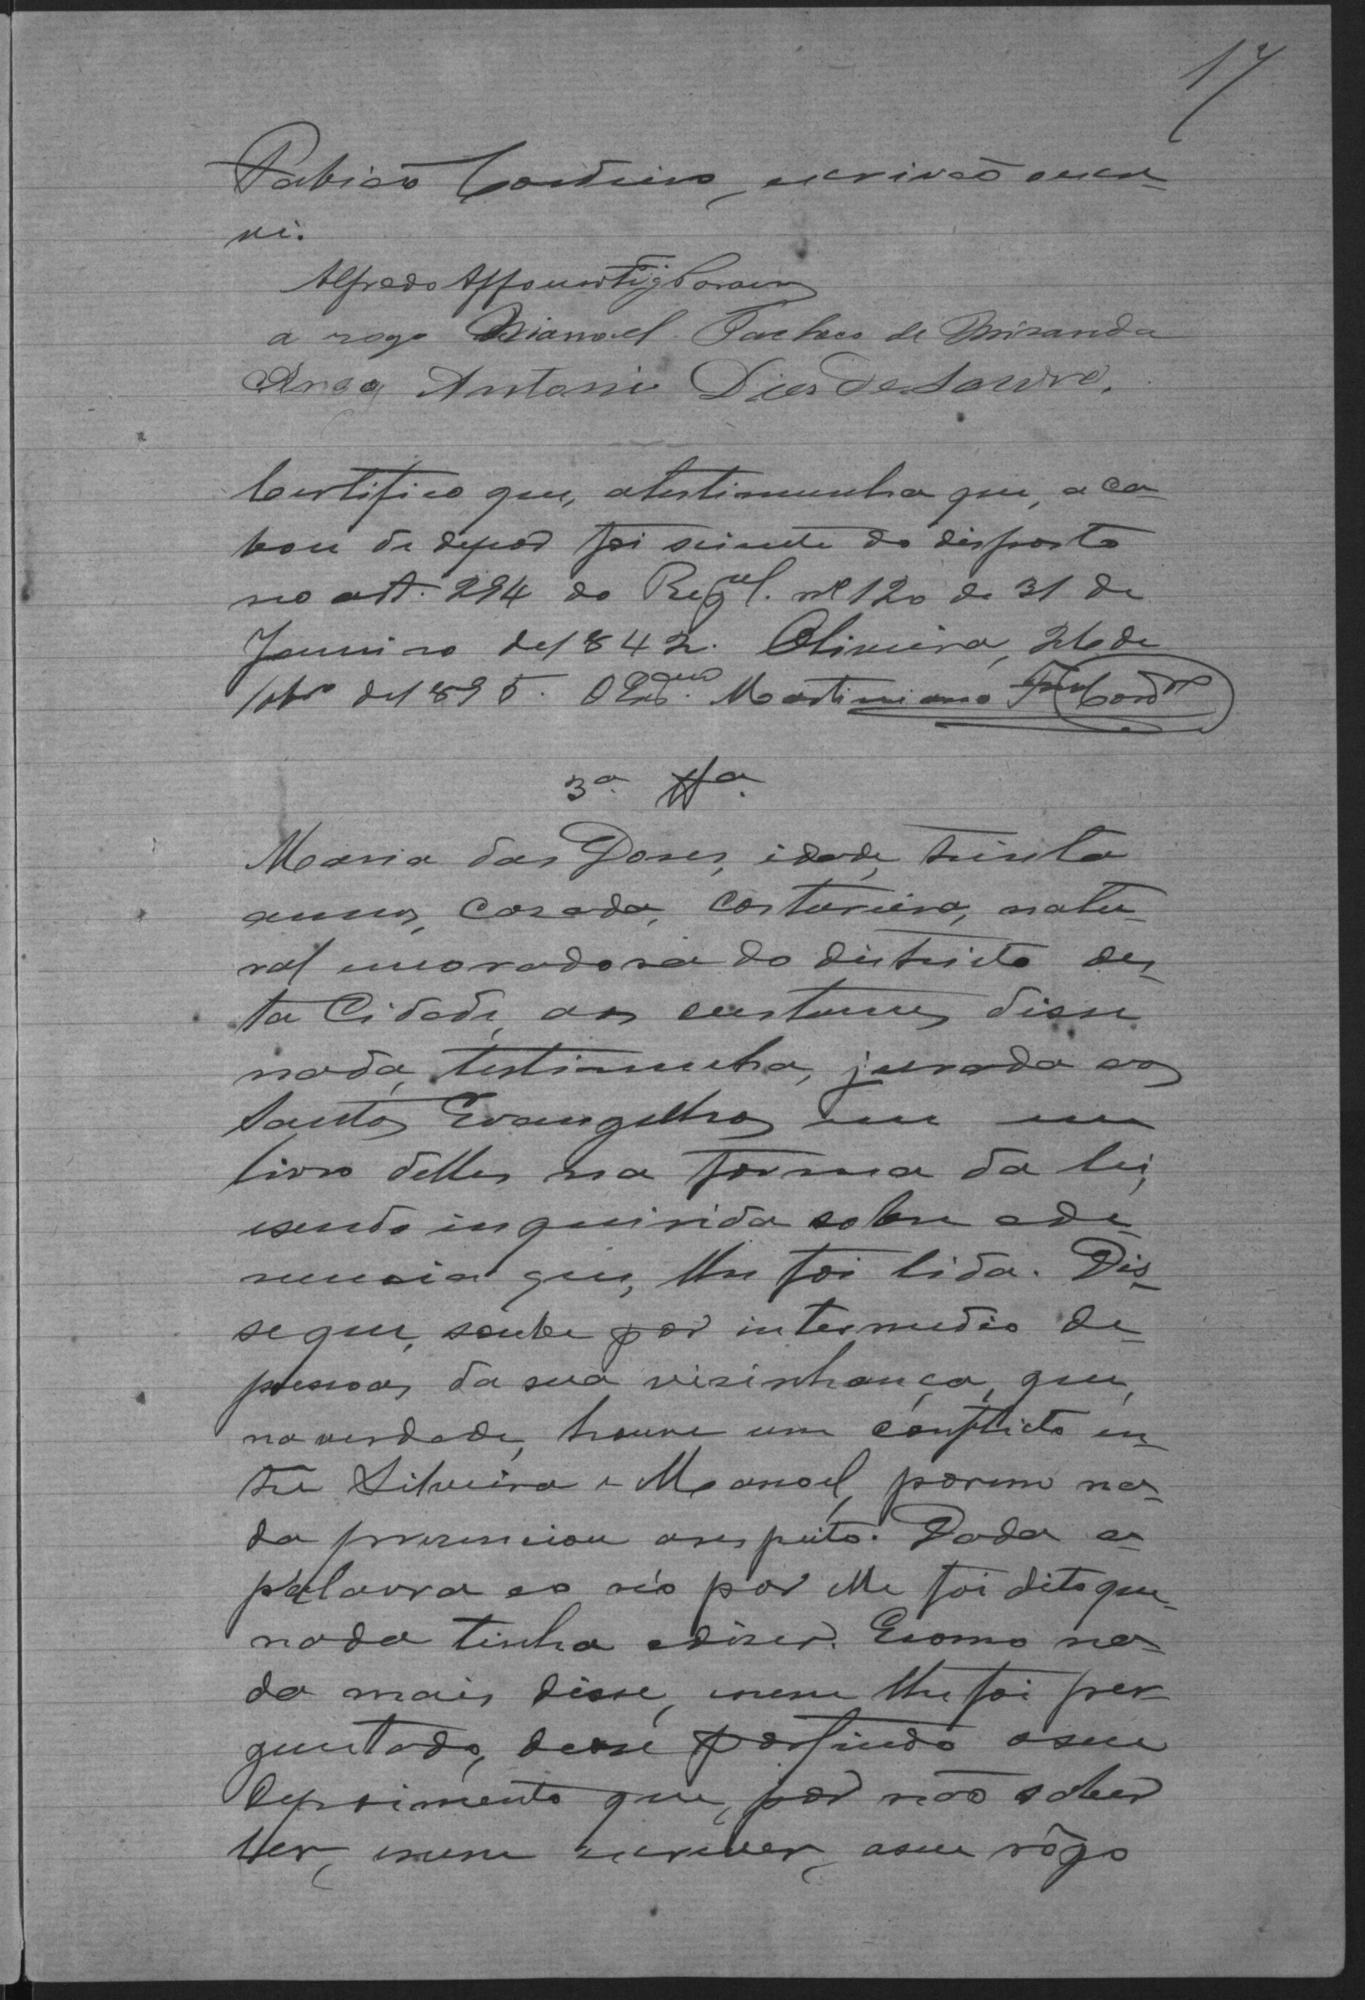 17
Fabiaõ Cordeiro, escrivaõ o escre-
vi.
Alfredo Affonso
a rogo Manoel Pacheco de Miranda
Antonio Dias de
Certifico que, a testimunha que, aca-
bou de depor foi sciente do disposto
no art. 294 do Regul. nº 120 de 31 de
Janeiro de 1842. Oliveira, 26 de
7bro de 1895. O Martiniano Cordro
3ª. Tta.
Maria das Dores, idade, trinta
annos, casada, costureira, natu-
ral e moradora do districto des-
ta Cidade, aos custumes disse
nada, testimunha, jurada aos
Santos Evangelhos em um
livro delles na forma da lei,
e sendo inquirida sobre a de-
nuncia que, lhe foi lida. Dis-
se que, soube por intermedio de
pessoas da sua visinhança, que,
na verdade, houve um conflicto en-
tre Silveira e Manoel, porem na-
da presenciou a respeito. Dada a
palavra ao réo por elle foi dito que
nada tinha a dizer. E como na-
da mais disse, e nem lhe foi per-
guntado, deose por findo o seu
depoimento que, por não saber
ler, e nem escrever, a seu rôgo